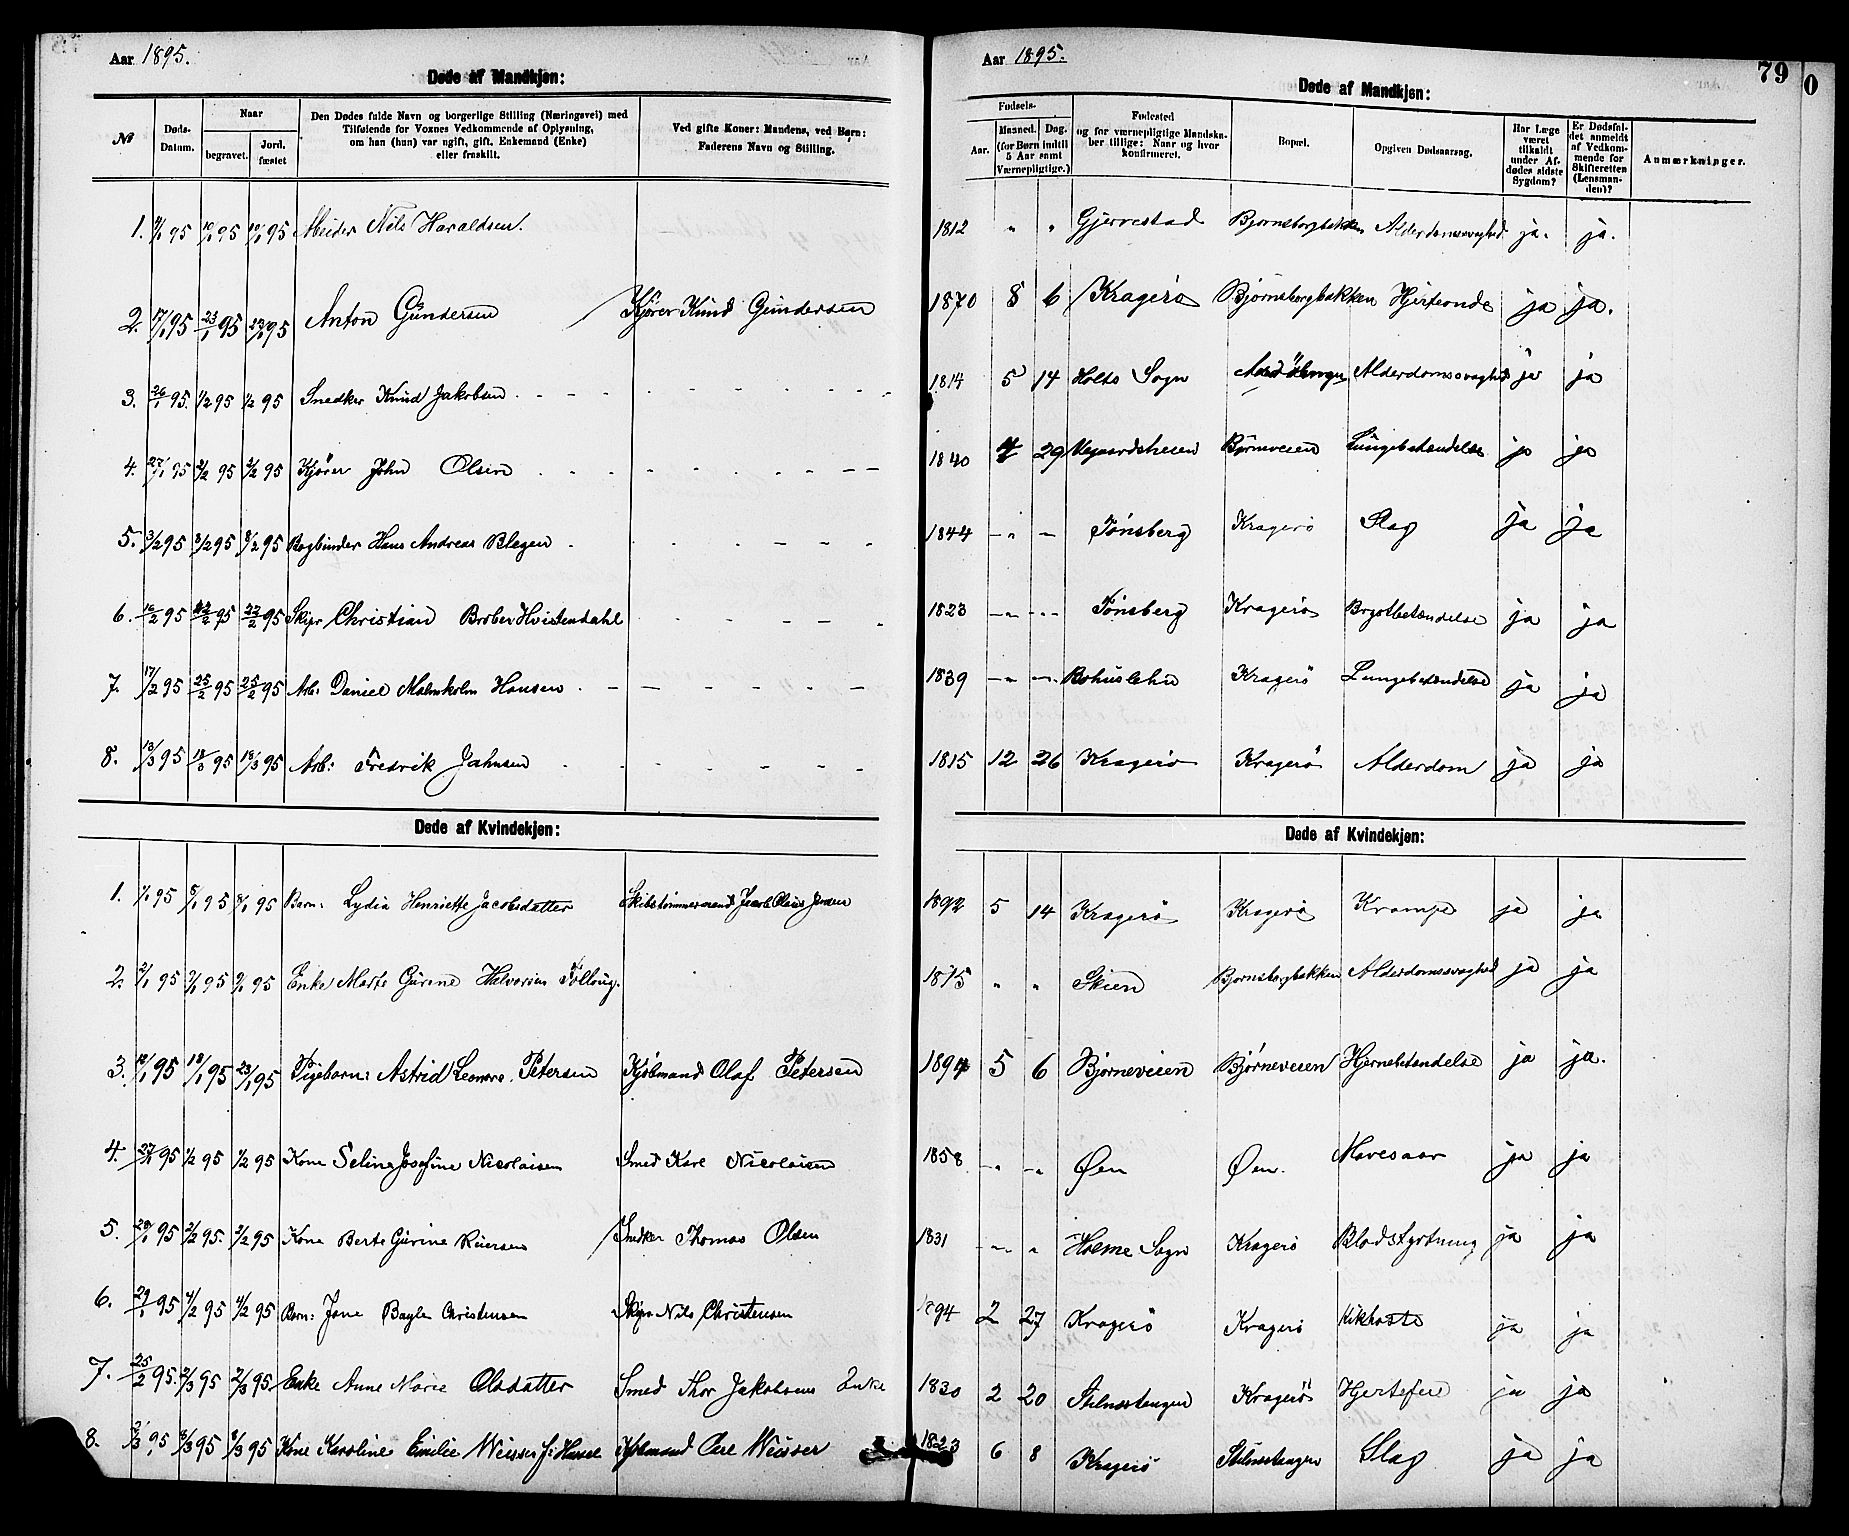 Aar 1895.
Døde af Mandkjøn:
№
Døds-Datum.
Naar
begravet.
Jord. fæstet
Den Dødes fulde Navn og borgerlige Stilling (Næringsvei) med
Tilføiende for Voxnes Vedkommende af Oplysning,
om han (hun) var ugift, gift, Enkemand (Enke)
eller fraskilt.
Ved gifte Koner: Mandens, ved Børn:
Faderens Navn og Stilling.
1. 95 10/1 95 10/1 95 Nils Haraldsen.
2. 17/1 95 23/1 95 23/1 95 Anton Gundersen Kjører Knud Gundersen
3. 26/1 95. 1/2 95 1/2 95 Snedker Knud Jakobsen
4. 27/1 95 2/2 95 2/2 95 Kjører John Olsen
5. 3/2 95 8/2 95 8/2 95 Bogbinder Hans Andreas Blegen
6. 16/2 95 22/2 95 22/2 95 Skipr Christian Brober Hvistendahl
7. 17/2 95 25/2 95 25/2 95 Arb: Daniel Malmholm Hansen
8. 13/3 95 18/3 95 18/3 95 Arb: Fredrik Jahnsen
Døde af Kvindekjøn:
1. 1/1 95 5/1 95 8/1 95 Barn: Lydia Henriette Jacobsdatter Skibstømmermand Jacob Olaus Jensen
2. 2/1 95 9/1 95 9/1 95 Enke Marte Gurine Halvorsen
3. 12/1 95 18/1 95 23/1 95 Pigebarn: Astrid Leonora. Petersen Kjøbmand Olaf Petersen
4. 27/1 95 1/2 95 1/2 95 Kone Selina Josefine Nicolaisen Smed Karl Nicolaisen
5. 28/1 95 2/2 95. 2/2 95 Kone Berte Gurine Snedker Thomas Olsen
6. 29/1 95 4/2 95 4/2 95 Barn: Jane Bayle Christensen Skipr Nils Christensen
7. 25/2 95. 2/3 95 2/3 95. Enke Anne Marie Olsdatter Smed Thor Jakobsens Enke
8. 2/3 95 8/3 95 8/3 95 Kone Karoline Emilie Weisser f: Kjøbmand Carl Weisser
Aar 1895.
79
0
Døde af Mandkjøn:
Fødsels-
Aar.
Maaned. Dag.
(for Børn indtil
5 Aar samt
Værnepligtige.)
Fødested
og for værnepligtige Mandska-
ber tillige: Naar og hvor
konfirmeret.
Bopæl.
Opgiven Dødsaarsag.
Har Læge
været
tilkaldt
under Af-
dødes sidste
Sygdom?
Er Dødsfal-
det anmeldt
af Vedkom-
mende for
Skifteretten
(Lensman-
den)?
Anmærkninger.
1812 " " Gjerrestad Bjørnsborgbakken Alderdomssvaghed ja. ja.
1870 8 6 Kragerø Bjørnsborgbakken Hjerteonde ja ja.
1814 5 14 Holts Sogn Alderdomssvaghed ja ja
1840 4 29 Vegaardsheien Bjørneveien Lungebetændelse ja ja
1844 – " – Tønsberg Kragerø Slag ja ja
1823 Tønsberg Kragerø Brystbetændelse ja ja
1839 Bohuslehn Kragerø Lungebetændelse ja ja
1815 12 26 Kragerø Kragerø Alderdom ja ja
Døde af Kvindekjøn:
1892 5 14 Kragerø Kragerø Krampe ja ja
1815 " " Skien Bjørnsborgbakken Alderdomssvaghed ja ja
1894 5 6 Bjørneveien Bjørneveien Hjernebetændelse ja ja.
1858 Øen Øen. Mavesaar ja ja
1831 Holme Sogn Kragerø Blodstyrtning ja ja
1894 2 27 Kragerø Kragerø Kikhoste ja ja
1830 2 20 Stilnestangen Kragerø Hjertefeil ja ja
1823 6 8 Kragerø Stilnestangen Slag ja ja